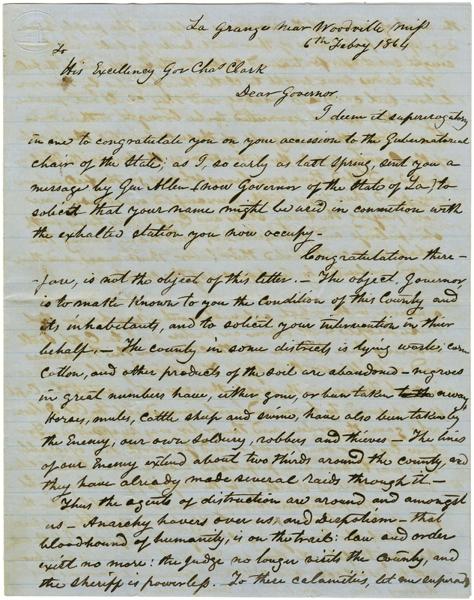 La Grange near Woodville Miss
6th Febry 1864
To
His Excellency Gov Chas Clark
Dear Governor
I deem it supererogatory
in me to congratulate you on your accession to the Gubernatorial
chair of the State; as I, so early as last Spring, sent you a
message by Gen Allen (now Governor of the State of La) to
solicit that your name might be used in connection with
the exhalted station you now occupy-
Congratulation there-
-fore, is not the object of this letter. - The object, Governor
is to make known to you the condition of this County and
its inhabitants, and to solicit your intervention in their
behalf. - The county in some districts is lying waste; corn
cotton, and other products of the soil are abandoned - negroes
in great numbers have, either gone, or been taken away
Horses, mules, cattle sheep and swine, have also been taken by
the Enemy, our own soldiery, robbers and thieves - The lines
of our Enemy extend about two thirds around the county, and
they have already made several raids through it -
Thus the agents of distruction are around and amongst
us - Anarchy havers over us, and Despotism - that
bloodhound of humanity, is on the trail: law and order
exist no more: the judge no longer visits the County, and
the Sheriff is powerless. To these calamities, let me superadd